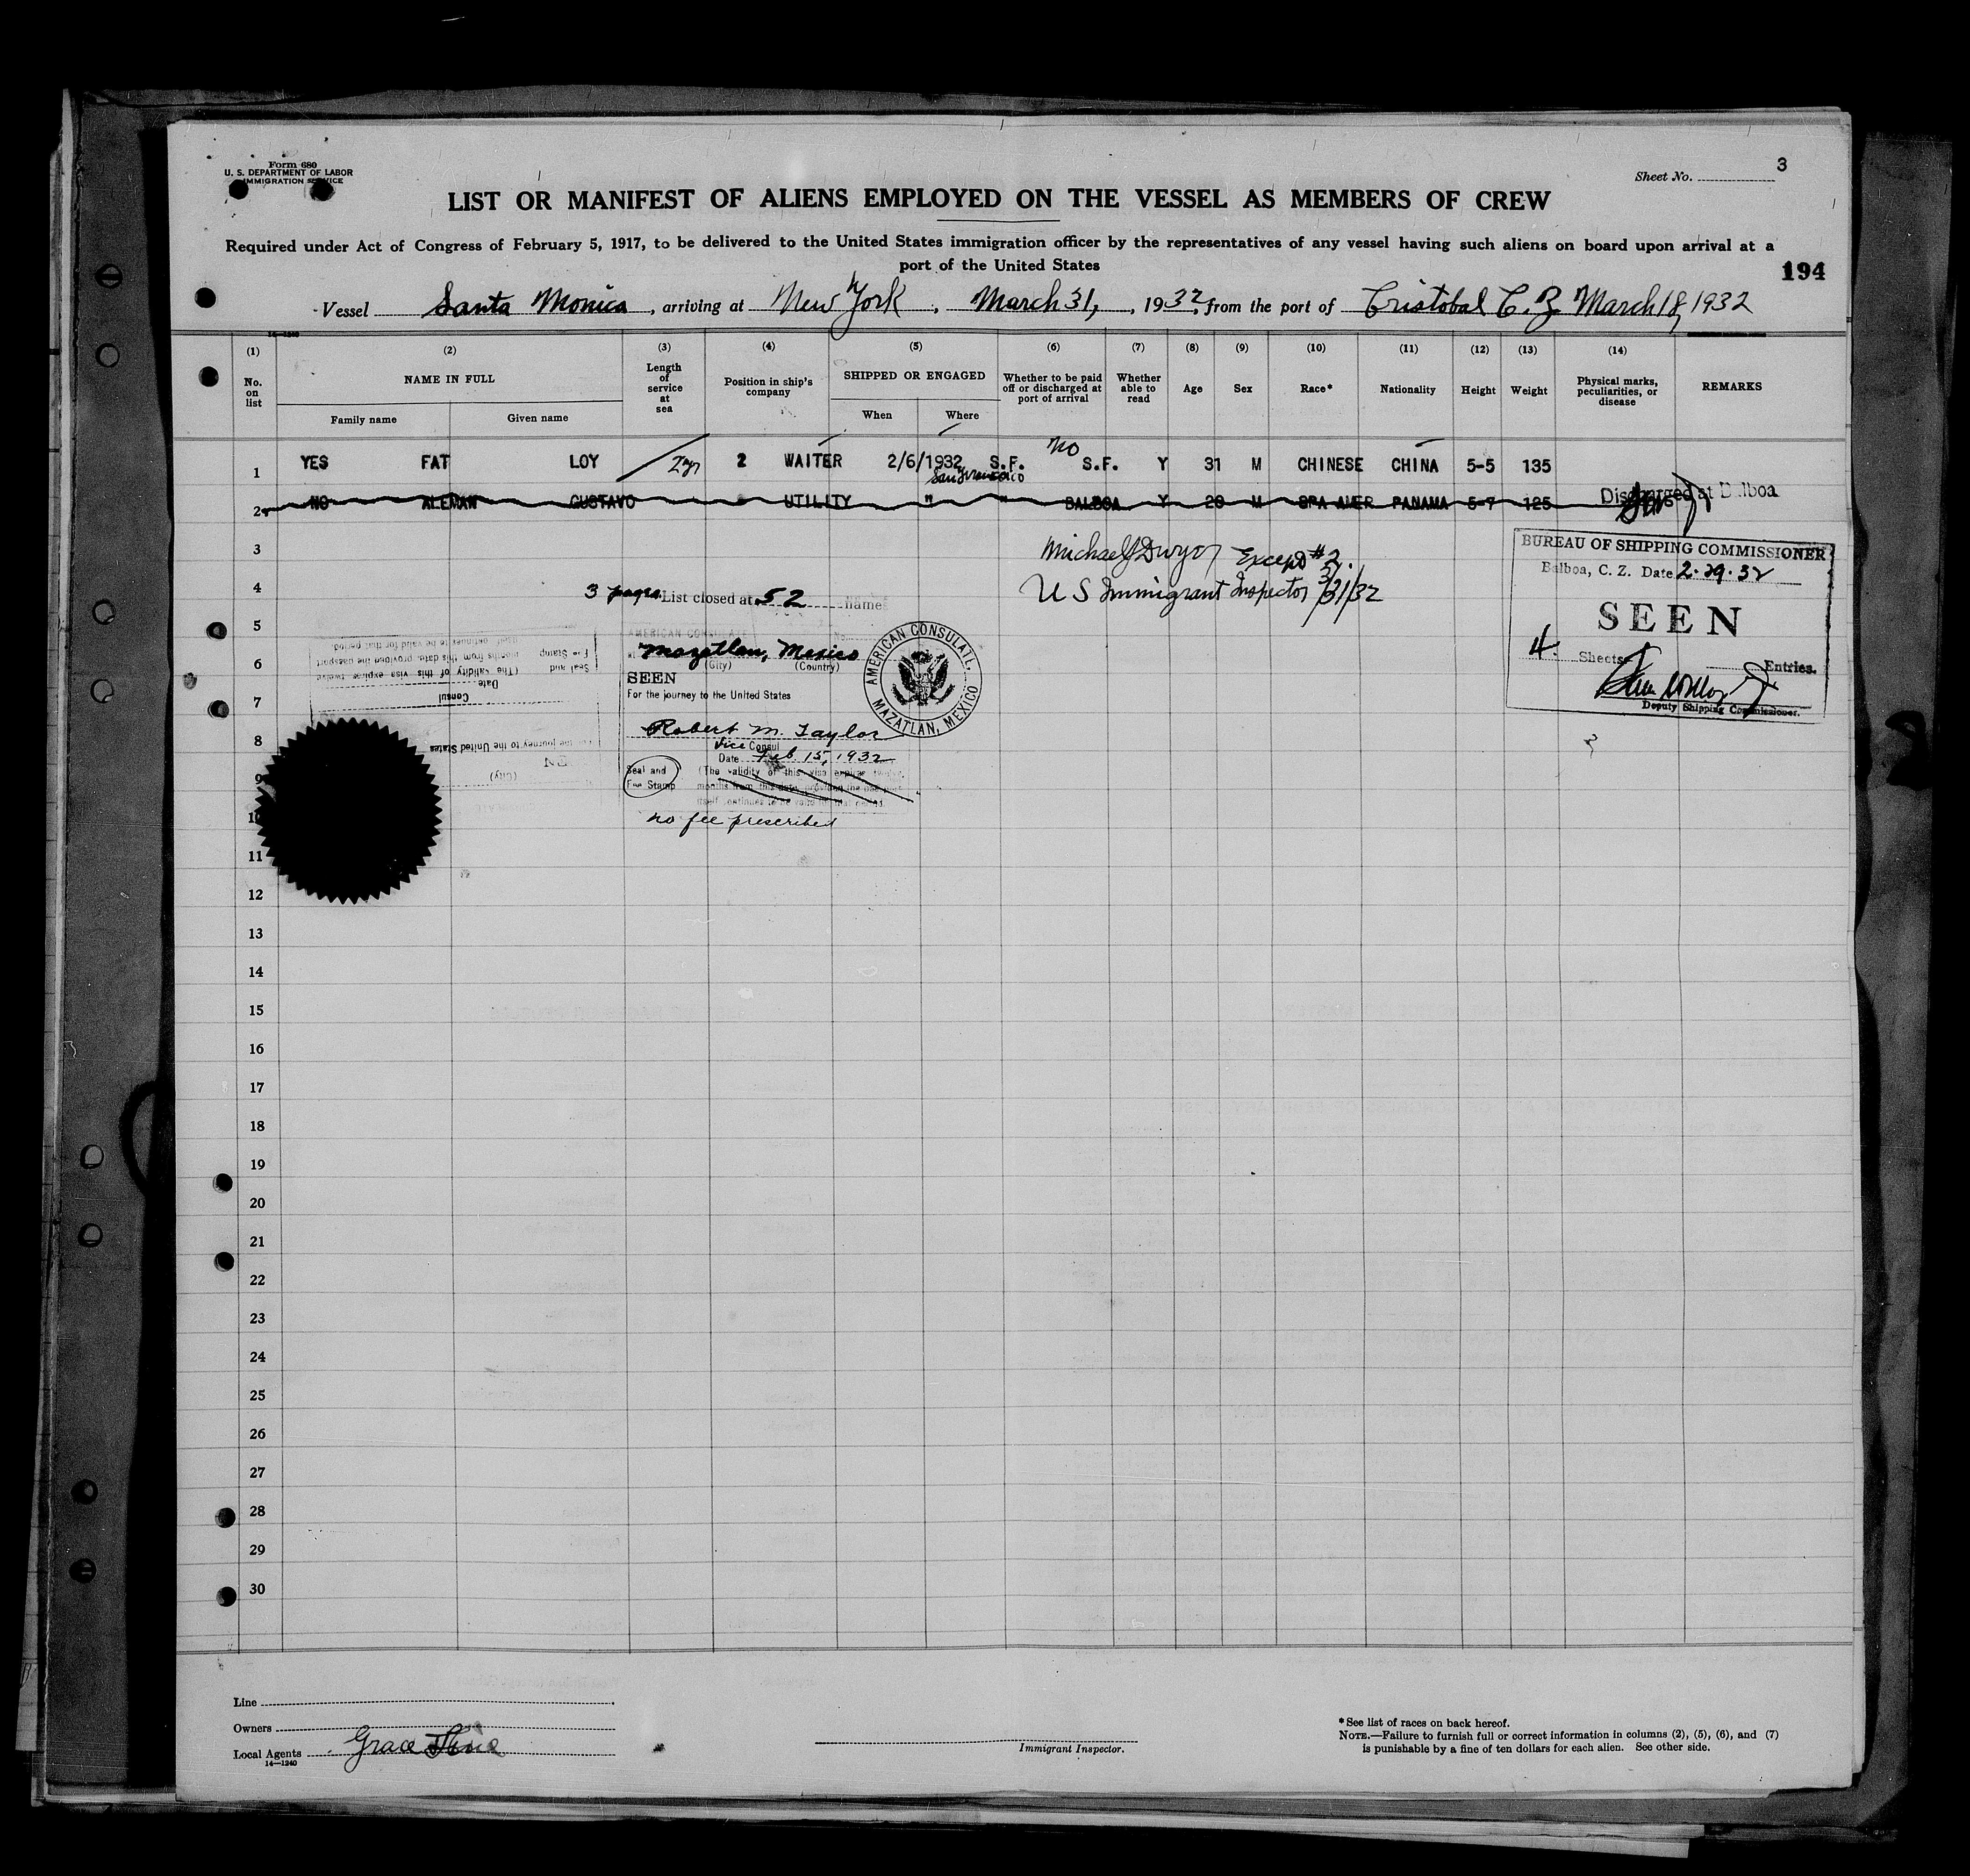 Form 680
U. S. DEPARTMENT OF LABOR
IMMIGRATION SERVICE
Sheet No. 3
LIST OR MANIFEST OF ALIENS EMPLOYED ON THE VESSEL AS MEMBERS OF CREW
Required under Act of Congress of February 5, 1917, to be delivered to the United States immigration officer by the representatives of any vessel having such aliens on board upon arrival at a
port of the United States
194
Vessel Santa Monica, arriving at New York, March 31, 1932, from the port of Cristobal C. Z. March 18, 1932
14-1240
(1) (2) (3) (4) (5) (6) (7) (8) (9) (10) (11) (12) (13) (14)
No. on list
NAME IN FULL
Family name Given name
Length of service at sea
Position in ship's company
SHIPPED OR ENGAGED
When Where
Whether to be paid off or discharged at port of arrival
Whether able to read
Age
Sex
Race*
Nationality
Height
Weight
Physical marks, peculiarities, or disease
REMARKS
1 YES FAT LOY 2 yr 2 WAITER 2/6/1932 S.F. S.F. Y 31 M CHINESE CHINA 5-5 135
no
San Francisco
2 NO ALEMAN GUSTAVO UTILITY " " BALBOA Y 20 M SPA AMER PANAMA 5-7 125 Discharged at Balboa
3
Michael J Dwyer Except #2.
U S Immigrant Inspector 3/31/32
4
3 pages. List closed at 52 names
BUREAU OF SHIPPING COMMISSIONER
Balboa, C. Z. Date 2.29.32
SEEN
4 Sheets Entries.
Deputy Shipping Commissioner.
5
AMERICAN CONSULATE No.
6
Mazatlan, Mexico
(City) (Country)
SEEN
For the journey to the United States
7
Robert M. Taylor
Vice Consul
Date Feb 15, 1932
Seal and
Fee Stamp
(The validity of this visa expires twelve
months from this date, provided the passport
itself continues to be valid for that period.
no fee prescribed
AMERICAN CONSULATE,
MAZATLAN, MEXICO
itself continues to be valid for that period.
months from this date, provided the passport
(The validity of this visa expires twelve
Seal and
Fee Stamp
Date
Consul
For the journey to the United States
SEEN
(City)
8
9
10
11
12
13
14
15
16
17
18
19
20
21
22
23
24
25
26
27
28
29
30
Line
Owners
Local Agents Grace Line
14-1240
Immigrant Inspector.
*See list of races on back hereof.
NOTE.—Failure to furnish full or correct information in columns (2), (5), (6), and (7)
is punishable by a fine of ten dollars for each alien. See other side.